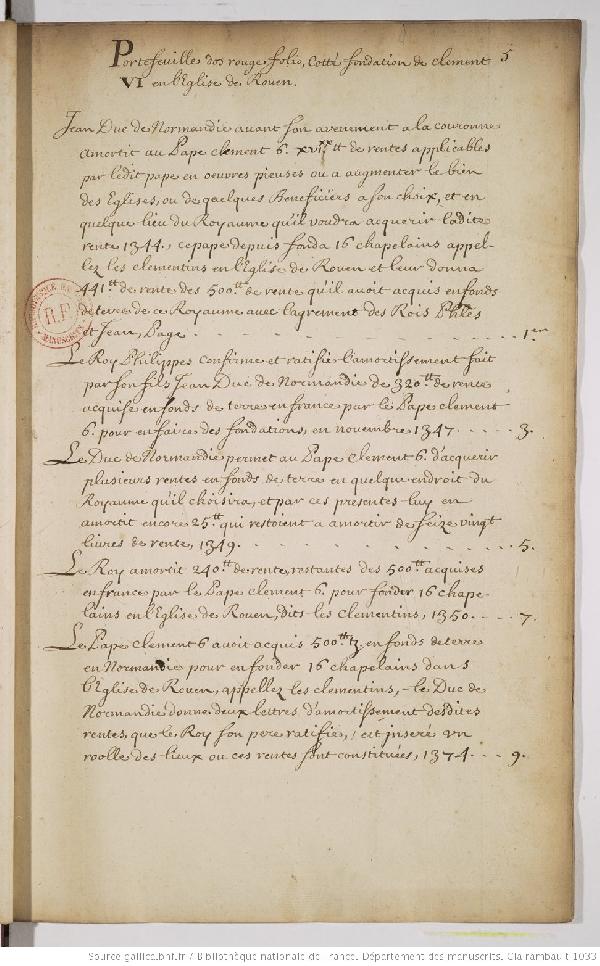 Portefeuille dos rouge folio, Cotté fondation de clement 5
VI en l'Eglise de Rouen.
Jean Duc de Normandie avant son avenement a la couronne
amortit au Pape clement 6. de rentes applicables
par ledit pape en oeuvres pieuses ou a augmenter le bien
des Eglises, ou de quelques Beneficiers a son choix, et en
quelque lieu du Royaume qu'il voudra acquerir ladite
rente 1344., ce pape depuis fonda 16 chapelains appel-
lez les clementins en l'Eglise de Rouen et leur donna
441tt de rente des 500tt de rente qu'il avoit acquis en fonds
de terre de ce Royaume avec l'agrement des Rois Phles
et Jean, Page . . . . . . . . . . 1er
Le Roy Philippes confirme et ratifie l'amortissement fait
par son fils Jean Duc de Normandie de 320tt de rente
acquise en fonds de terre en france par le Pape clement
6. pour en faire des fondations, en novembre 1347. . . . . 3.
Le Duc de Normandie permet au Pape Clement 6. d'acquerir
plusieurs rentes en fonds de terre en quelqu'endroit du
Royaume qu'il choisira, et par ces presentes luy en
amortit encore 25tt qui restoient a amortir de seize vingt
livres de rente, 1349. . . . . . . . . . 5.
Le Roy amortit 240tt de rente restantes des 500tt acquises
en france par le Pape clement 6. pour fonder 16 chape-
lains en l'Eglise de Rouen, dits les Clementins, 1350. . . . 7.
Le Pape Clement 6 avoit acquis 500tt en fonds de terre
en Normandie pour en fonder 16 chapelains dans
l'Eglise de Rouen, appellez les clementins, le Duc de
Normandie donne deux lettres d'amortissement desdites
rentes, que le Roy son pere ratifie, est inseré un
roolle des lieux ou ces rentes sont constituées, 1374. . . . 9.
R.F.
MANUSCRITS
Source gallica.bnf.fr / Bibliothèque nationale de France. Département des manuscrits. Clairambault 1033